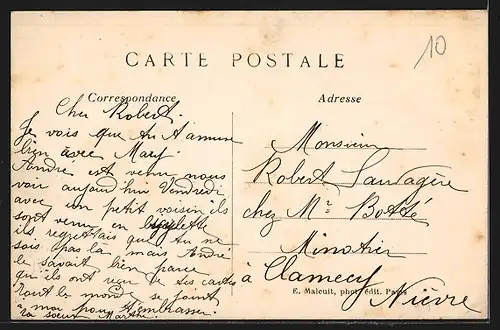 10
CARTE POSTALE
Correspondance
Adresse
Cher Robert.
Je vois que tu t'amuse
bien avec Mary.
André est venu nous
voir aujourd'hui Vendredi
avec un petit voisin ils
sont venu en bicyclette
ils regrettais que tu ne
sois pas là mais André
le savait bien parce
qu'ils ont reçu de ses cartes
Tout le monde se joint
à moi pour t'embrasser.
ta soeur Marthe
Monsieur
Robert Sauvagère
chez Mr Botté
Minotier
à Clamecy
Nièvre
E. Malcuit, phot. édit. Paris